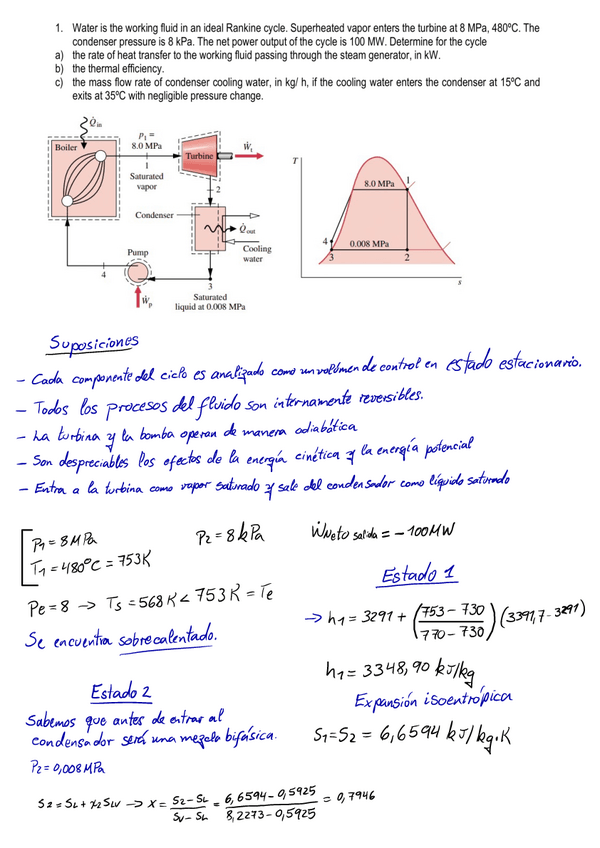 1. Water is the working fluid in an ideal Rankine cycle. Superheated vapor enters the turbine at 8 MPa, 480ºC. The
condenser pressure is 8 kPa. The net power output of the cycle is 100 MW. Determine for the cycle
a) the rate of heat transfer to the working fluid passing through the steam generator, in kW.
b) the thermal efficiency.
c) the mass flow rate of condenser cooling water, in kg/ h, if the cooling water enters the condenser at 15ºC and
exits at 35ºC with negligible pressure change.
Q̇in
Boiler
p1 =
8.0 MPa
1
Saturated
vapor
Turbine
Ẇt
2
Condenser
Q̇out
Cooling
water
Pump
4
Ẇp
3
Saturated
liquid at 0.008 MPa
T
8.0 MPa
1
4
0.008 MPa
3
2
s
Suposiciones
- Cada componente del ciclo es analizado como un volúmen de control en estado estacionario.
- Todos los procesos del fluido son internamente reversibles.
- La turbina y la bomba operan de manera adiabática
- Son despreciables los efectos de la energía cinética y la energía potencial
- Entra a la turbina como vapor saturado y sale del condensador como líquido saturado
P1 = 8 MPa
T1 = 480ºC = 753K
P2 = 8 kPa
ẆNeto salida = - 100MW
Pe = 8 → Ts = 568 K < 753 K = Te
Se encuentra sobrecalentado.
Estado 1
→ h1 = 3291 + (753 - 730 / 770 - 730) (3391,7 - 3291)
h1 = 3348,90 kJ/kg
Expansión isoentrópica
S1 = S2 = 6,6594 kJ/kg.K
Estado 2
Sabemos que antes de entrar al
condensador será una mezcla bifásica.
P2 = 0,008 MPa
S2 = SL + x2 SLV → X = S2 - SL / SV - SL = 6,6594 - 0,5925 / 8,2273 - 0,5925 = 0,7946